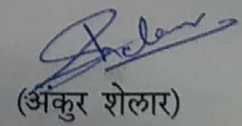 (अंकुर शेलार)